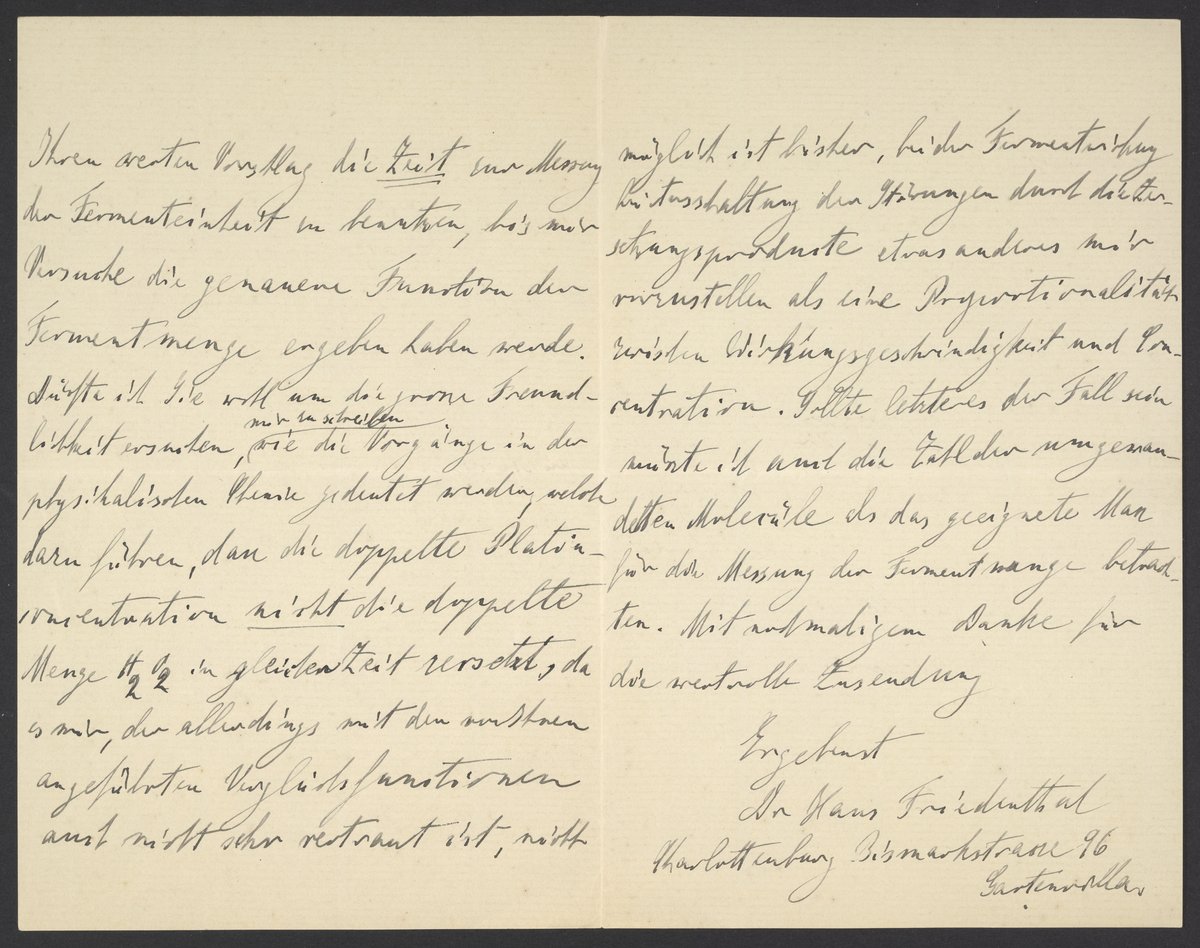 Ihren werten Vorschlag die Zeit zur Messung
der Fermenteinheit zu benutzen, bis mir
Versuche die genauere Function der
Fermentmenge ergeben haben werde.
Dürfte ich Sie wohl um die grosse Freund-
mir zu schreiben
lichkeit ersuchen, wie die Vorgänge in der
physikalischen Chemie gedeutet werden, welche
dazu führen, dass die doppelte Platin-
concentration nicht die doppelte
Menge H2O2 in gleichen Zeit zersetzt, da
es mir, der allerdings mit den von Ihnen
angeführten Vergleichsfunctionen
auch nicht sehr vertraut ist, nicht
möglich ist bisher, bei der Fermentwirkung
bei Ausschaltung der Störungen durch die Zer-
setzungsproducte etwas anderes mir
vorzustellen als eine Proportionalität
zwischen Wirkungsgeschwindigkeit und Con-
centration. Sollte letzteres der Fall sein
müsste ich auch die Zahl der umgewan-
delten Molecüle als das geeignete Mass
für die Messung der Fermentmenge betrach-
ten. Mit nochmaligem Danke für
die wertvolle Zusendung
Ergebenst
Dr Hans Friedenthal
Charlottenburg Bismarkstrasse 96
Gartenvilla